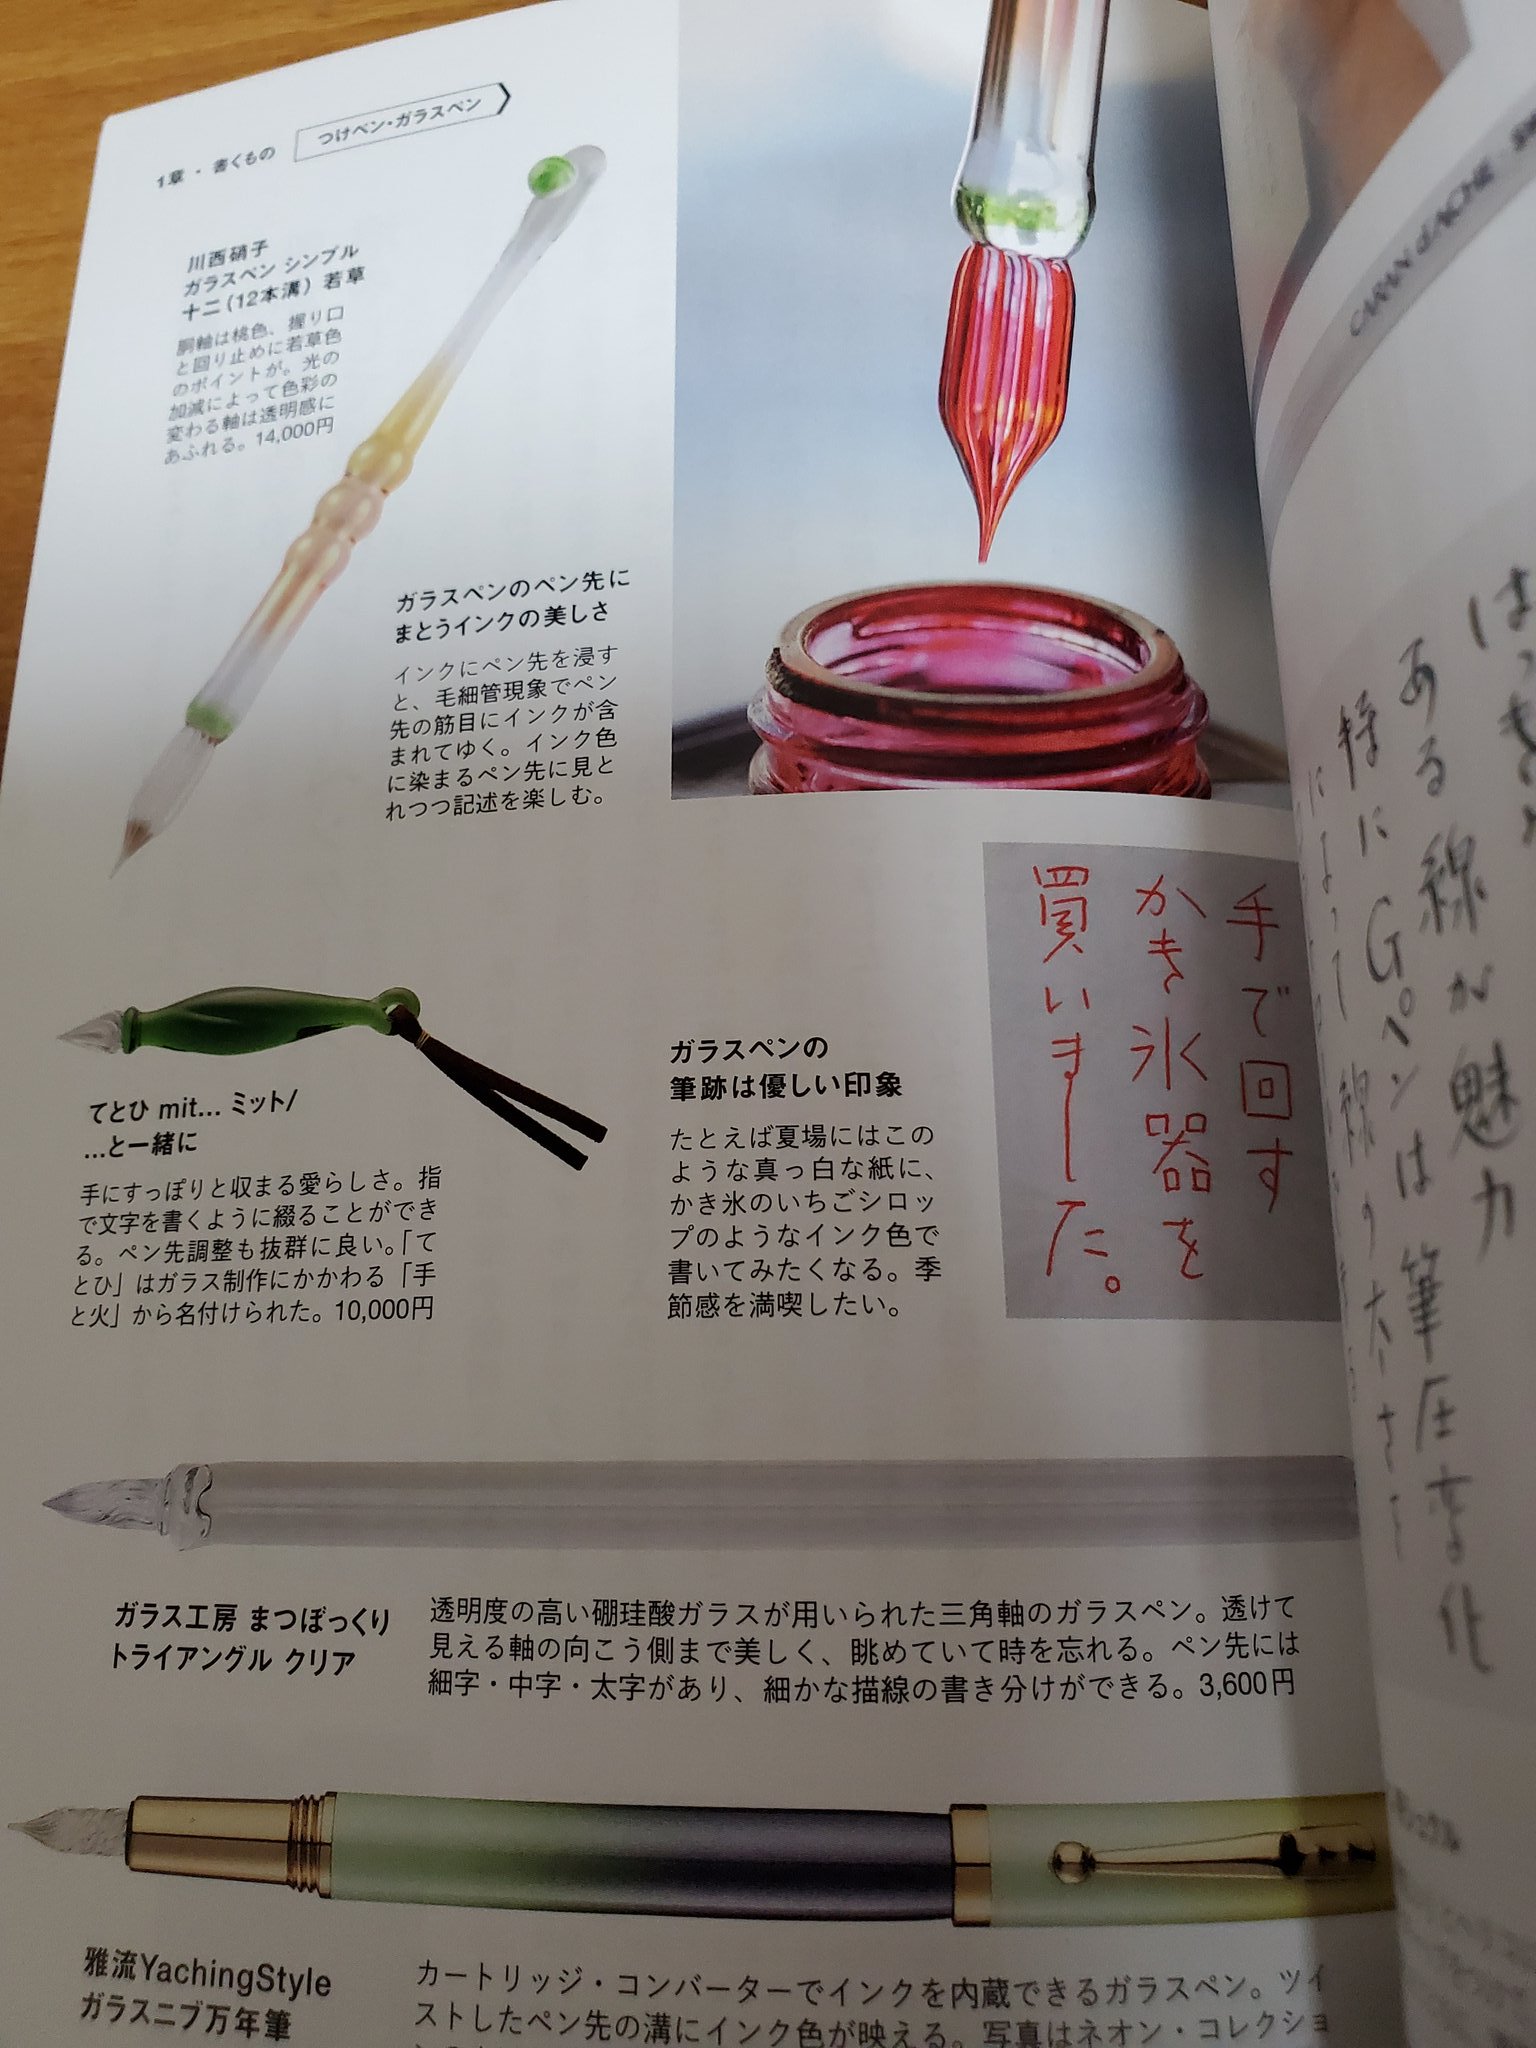 1章・書くもの
つけペン・ガラスペン
川西硝子
ガラスペン シンプル
十二（12本溝）若草
胴軸は桃色、握り口
と回り止めに若草色
のポイントが。光の
加減によって色彩の
変わる軸は透明感に
あふれる。14,000円
ガラスペンのペン先に
まとうインクの美しさ
インクにペン先を浸す
と、毛細管現象でペン
先の筋目にインクが含
まれてゆく。インク色
に染まるペン先に見と
れつつ記述を楽しむ。
手で回す
かき氷器を
買いました。
てとひ mit… ミット/
…と一緒に
手にすっぽりと収まる愛らしさ。指
で文字を書くように綴ることができ
る。ペン先調整も抜群に良い。「て
とひ」はガラス制作にかかわる「手
と火」から名付けられた。10,000円
ガラスペンの
筆跡は優しい印象
たとえば夏場にはこの
ような真っ白な紙に、
かき氷のいちごシロッ
プのようなインク色で
書いてみたくなる。季
節感を満喫したい。
ガラス工房 まつぼっくり
トライアングル クリア
透明度の高い硼珪酸ガラスが用いられた三角軸のガラスペン。透けて
見える軸の向こう側まで美しく、眺めていて時を忘れる。ペン先には
細字・中字・太字があり、細かな描線の書き分けができる。3,600円
雅流YachingStyle
ガラスニブ万年筆
カートリッジ・コンバーターでインクを内蔵できるガラスペン。ツイ
ストしたペン先の溝にインク色が映える。写真はネオン・コレクショ
CARAN d'ACHE
ある線が魅力
特にGペンは筆圧変化
によって線の太さ